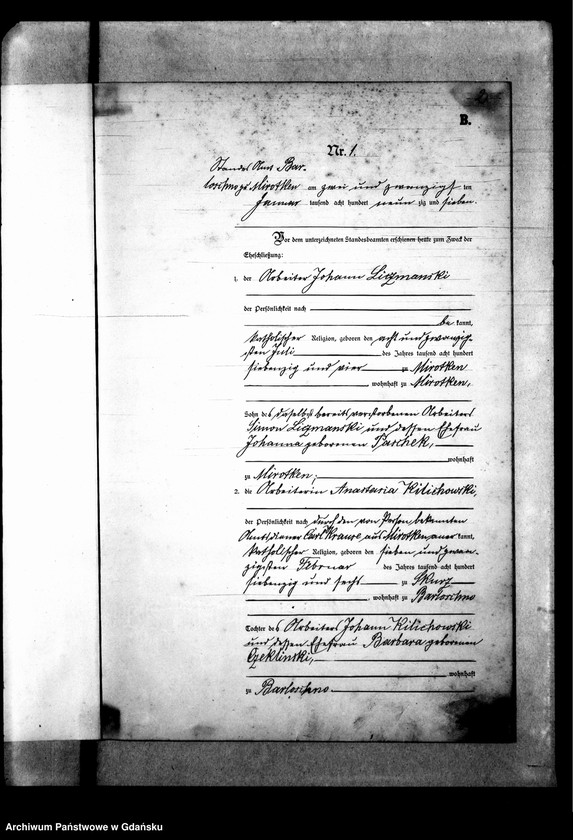 B.
Nr. 1.
Standes Amt Bar-
loschno zu Mirotken am zwei und zwanzigsten
Januar tausend acht hundert neun zig und sieben.
Vor dem unterzeichneten Standesbeamten erschienen heute zum Zweck der
Eheschließung:
1. der Arbeiter Johann Ligmanski
der Persönlichkeit nach
be kannt,
katholischer Religion, geboren den acht und zwanzig-
sten Juli des Jahres tausend acht hundert
siebenzig und vier zu Mirotken
, wohnhaft zu Mirotken,
Sohn des daselbst bereits verstorbenen Arbeiters
Simon Ligmanski und dessen Ehefrau
Johanna geborenen Parschek,
wohnhaft
zu Mirotken;
2. die Arbeiterin Anastasia Kilichowski,
der Persönlichkeit nach durch den von Person bekannten
Amtsdiener Carl Krause aus Mirotken aner kannt,
katholischer Religion, geboren den sieben und zwan-
zigsten Februar des Jahres tausend acht hundert
siebenzig und sechs zu Skurz
, wohnhaft zu Barloschno
Tochter des Arbeiters Johann Kilichowski
und dessen Ehefrau Barbara geborenen
Czeklinski,
wohnhaft
zu Barloschno
Archiwum Państwowe w Gdańsku